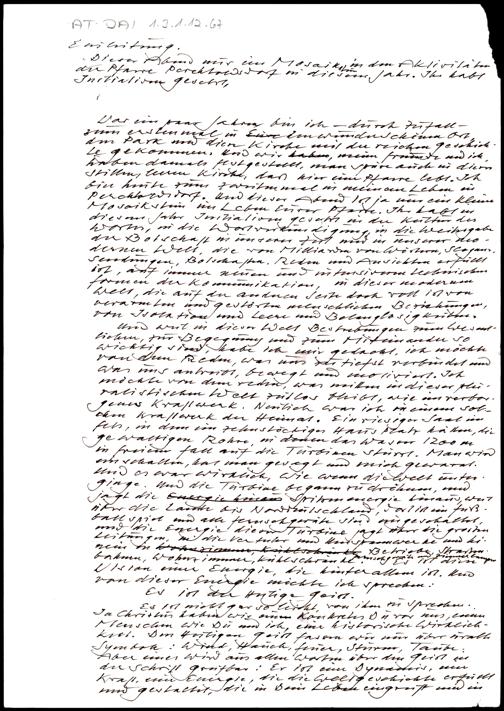 AT-DAI 1.3.1.12.67
Einleitung.
Dieser Abend nur ein Mosaik in den Aktivitäten
der Pfarre Perchtoldsdorf in diesem Jahr. Ihr habt
Initiativen gesetzt,
Vor ein paar Jahren bin ich – durch Zufall –
zum erstenmal in Euren wunderschönen Ort,
den Park und diese Kirche mit der reichen Geschich-
te gekommen. Und wir haben, mein Freund und ich
haben damals festgestellt, man spürt auch in dieser
stillen, leeren Kirche, daß hier eine Pfarre lebt. Ich
bin heute zum zweitenmal in meinem Leben in
Perchtoldsdorf. Und dieser Abend ist ja nur ein kleiner
Mosaikstein im Leben Eurer Pfarre. Ihr habt in
diesem Jahr Initiativen gesetzt in der Kultur des
Wortes, in die Wortverkündigung, in die Weitergabe
der Botschaft in unserer Zeit und in unserer mo-
dernen Welt, die von Milliarden von Worten,
sendungen, Botschaften, Reden und Ansichten erfüllt
ist, auf immer neuen und intensiveren technischen
Formen der Kommunikation, in dieser modernen
Welt, die auf der anderen Seite doch voll ist von
verarmten und gestörten menschlichen Beziehungen,
von Isolation und Leere und Belanglosigkeiten.
Und weil in dieser Welt Bestrebungen zum Wesent-
lichen, zur Begegnung und zum Miteinander so
wichtig sind, habe ich mir gedacht, ich möchte
von dem Reden, was uns zutiefst verbindet und
was uns antreibt, bewegt und motiviert. Ich
möchte von dem reden, was mitten in dieser plu-
ralistischen Welt zeitlos bleibt, wie im verbor-
genes Kraftwerk. Neulich war ich in einem sol-
chen Kraftwerk der Heimat. Ein riesiger Saal im
Fels, in dem ein zehnstöckiges Haus Platz hätte, die
gewaltigen Rohre, in denen das Wasser 1200 m
in freiem Fall auf die Turbinen stürzt. Man wird
einschalten, hat man gesagt und mich gewarnt.
Und es war wirklich, wie wenn die Welt unter-
ginge. Und die Turbine begann zu dröhnen, und
jagt die Energie hinein Spitzenenergie hinaus, weit
über die Lande bis Norddeutschland, falls ein Fuß-
ballspiel und alle Fernsehgeräte sind eingeschaltet
und die Energie dieser Turbine jagt über die großen
Leitungen, in die Verteiler und Umspannwerke und hi-
nein in Betriebe, Straßen-
bahnen, Wohnzimmer, Kühlschränke Es ist diese
Vision einer Energie, die hinter allem ist. Und
von dieser Energie möchte ich sprechen.
Es ist der Heilige Geist.
Es ist nicht gar so leicht, von ihm zu sprechen.
In Christus haben wir einen konkreten Du vor uns, einen
Menschen wie Du und ich, eine historische Wirklich-
keit. Den Heiligen Geist fassen wir nur über uralte
Symbole: Wind, Hauch, Feuer, Sturm, Taube.
Aber eines wird aus allen Worten über den Geist in
der Schrift greifbar: Er ist eine Dynamis, eine
Kraft, eine Energie, die die Weltgeschichte erfüllt
und gestaltet, die in Dein Leben eingreift und in